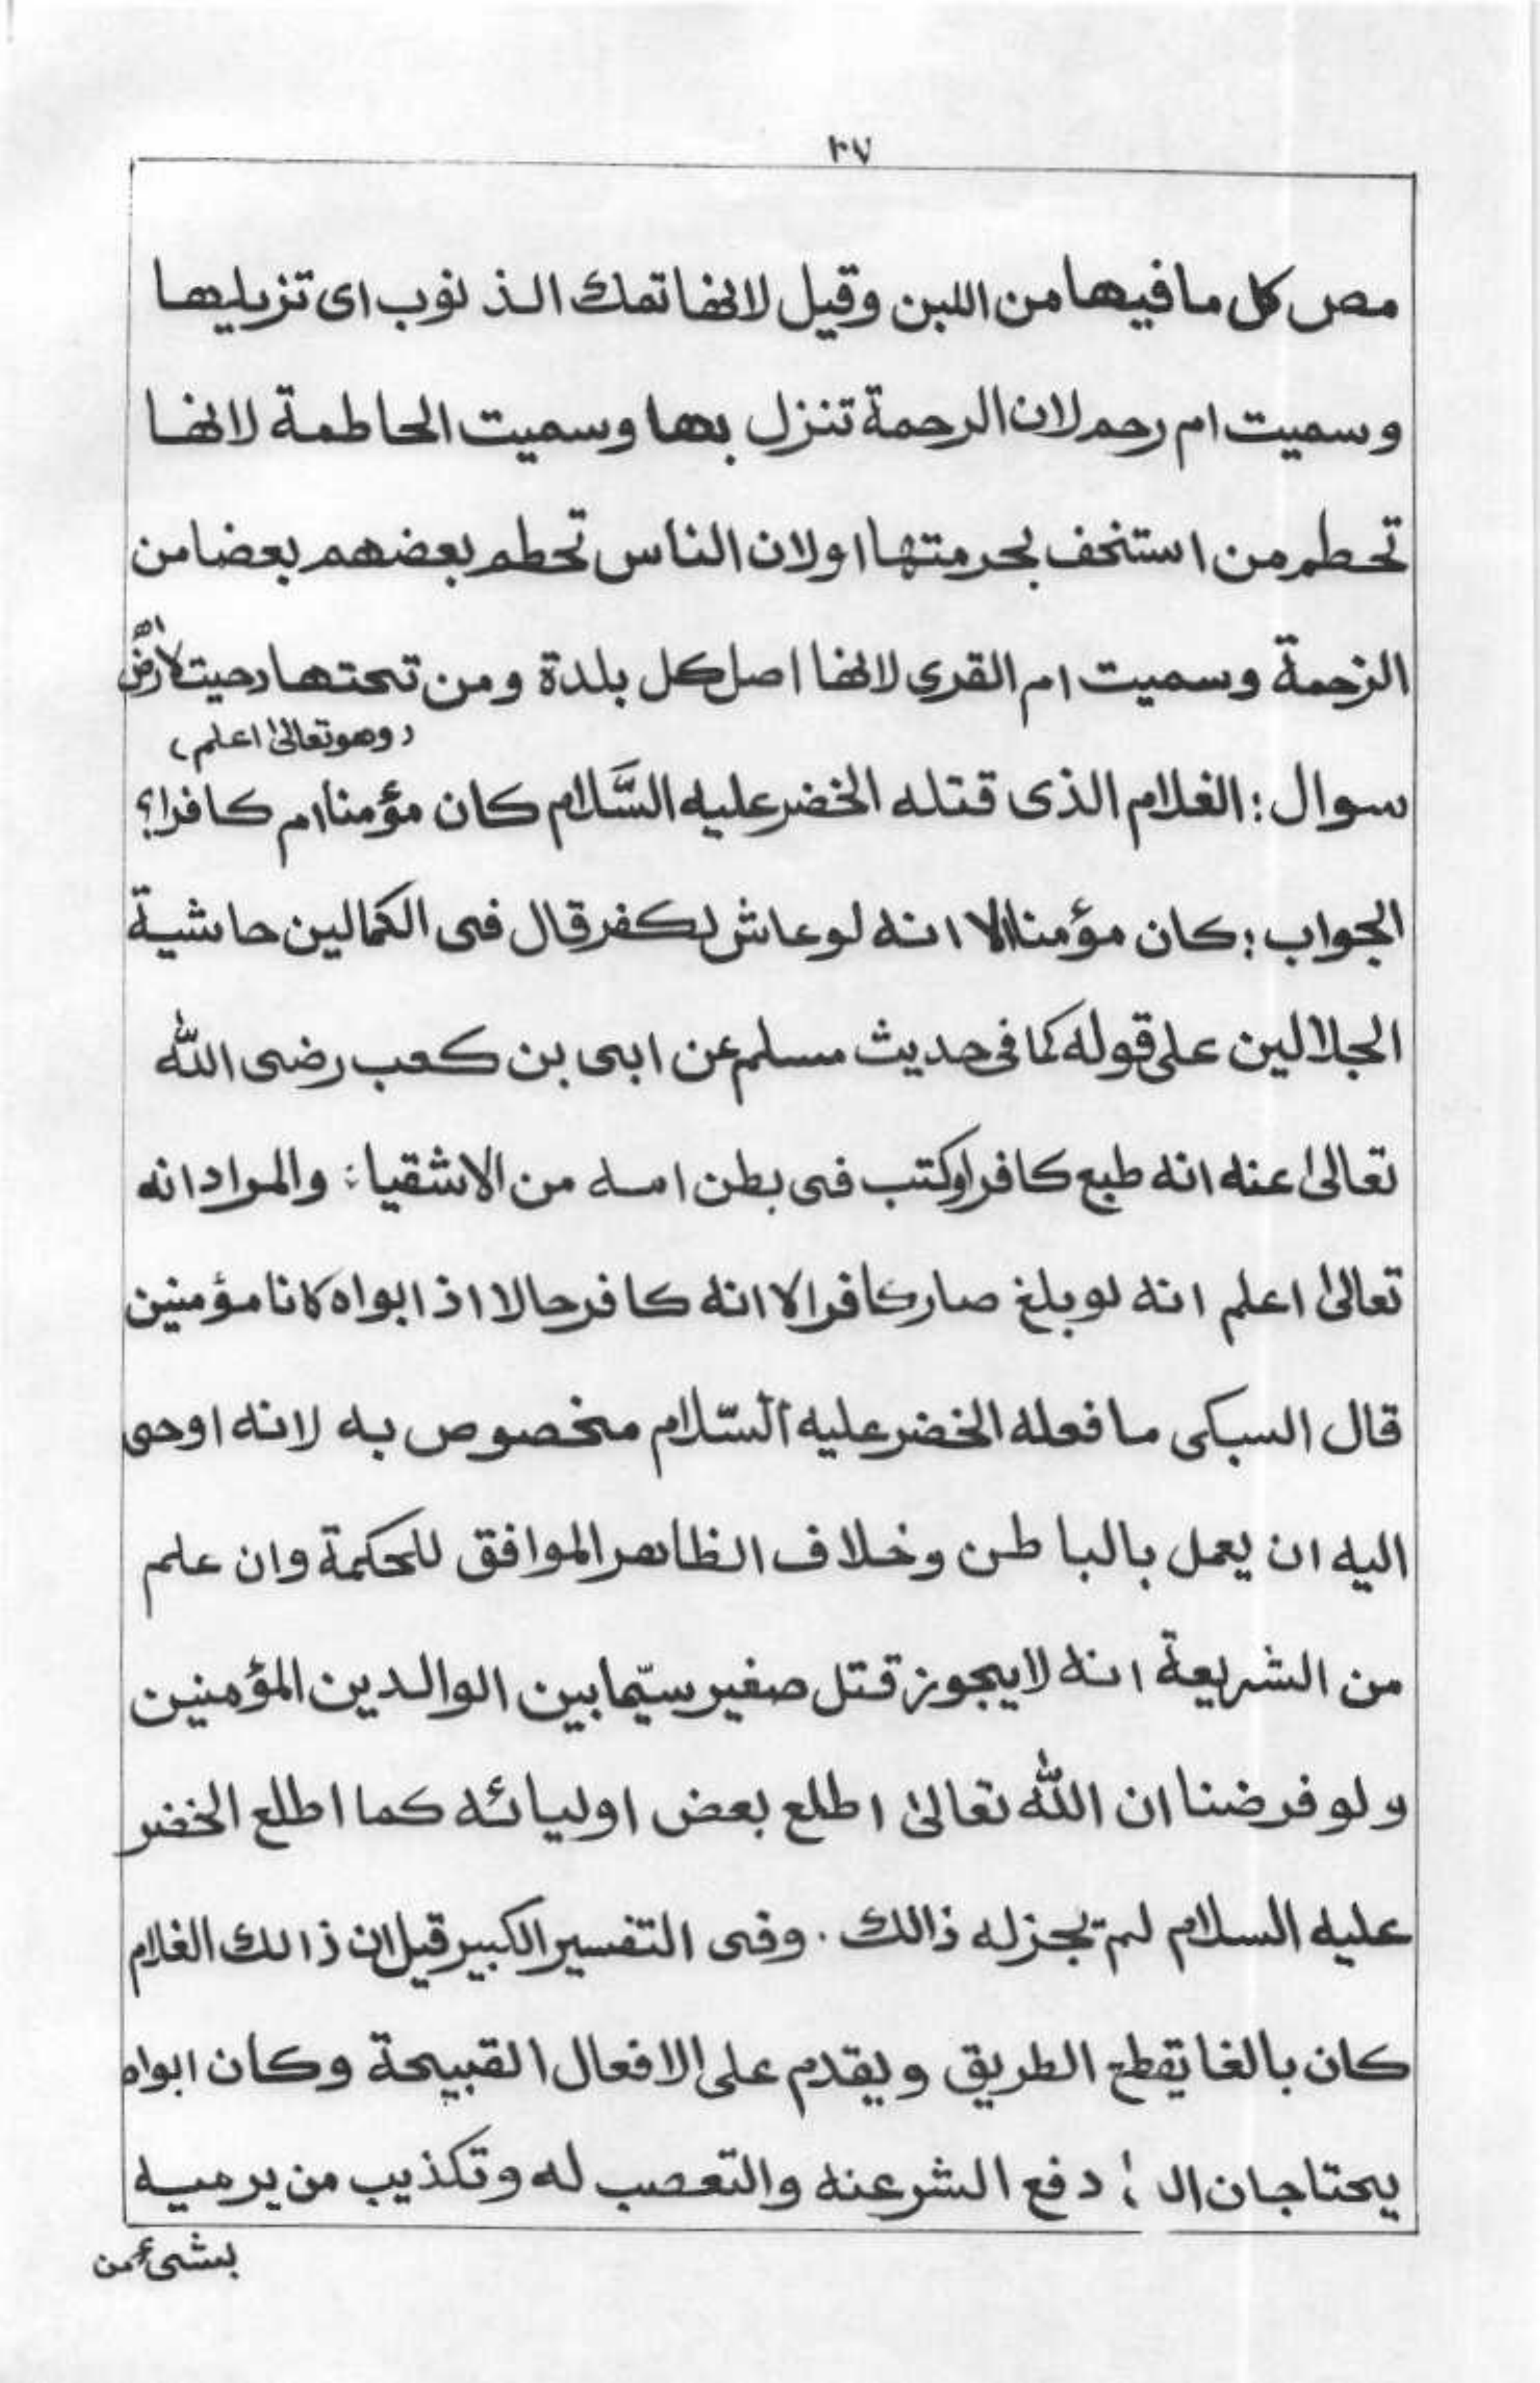 ٣٧
مص كل مافيها من اللبن وقيل لانها تمك الذنوب اى تزيلها
وسميت ام رحم لان الرحمة تنزل بها وسميت الحاطمة لانها
تحطم من استخف بحرمتها اولان الناس تحطم بعضهم بعضا من
الزحمة وسميت ام القرى لانها اصل كل بلدة ومن تحتها دحيت الارض اھ
(وهو تعالىٰ اعلم)
سوال: الغلام الذى قتله الخضر عليه السَّلام كان مؤمنا ام كافرا؟
الجواب: كان مؤمنا الا انه لوعاش لكفر قال فى الكمالين حاشية
الجلالين على قوله كما فى حديث مسلم عن ابى بن كعب رضى الله
تعالىٰ عنه انه طبع كافرا وكتب فى بطن امه من الاشقياء: والمراد انه
تعالىٰ اعلم انه لو بلغ صار كافرا لا انه كافر حالا اذ ابواه كانا مؤمنين
قال السبكى ما فعله الخضر عليه السّلام مخصوص به لانه اوحى
اليه ان يعمل بالباطن وخلاف الظاهر الموافق للحكمة وان علم
من الشريعة انه لايجوز قتل صغير سيّما بين الوالدين المؤمنين
ولو فرضنا ان الله تعالىٰ اطلع بعض اوليائه كما اطلع الخضر
عليه السلام لم يجز له ذالك. وفى التفسير الكبير قيل ان ذالك الغلام
كان بالغا يقطع الطريق ويقدم على الافعال القبيحة وكان ابواه
يحتاجان الى دفع الشر عنه والتعصب له وتكذيب من يرميه
بشىء من